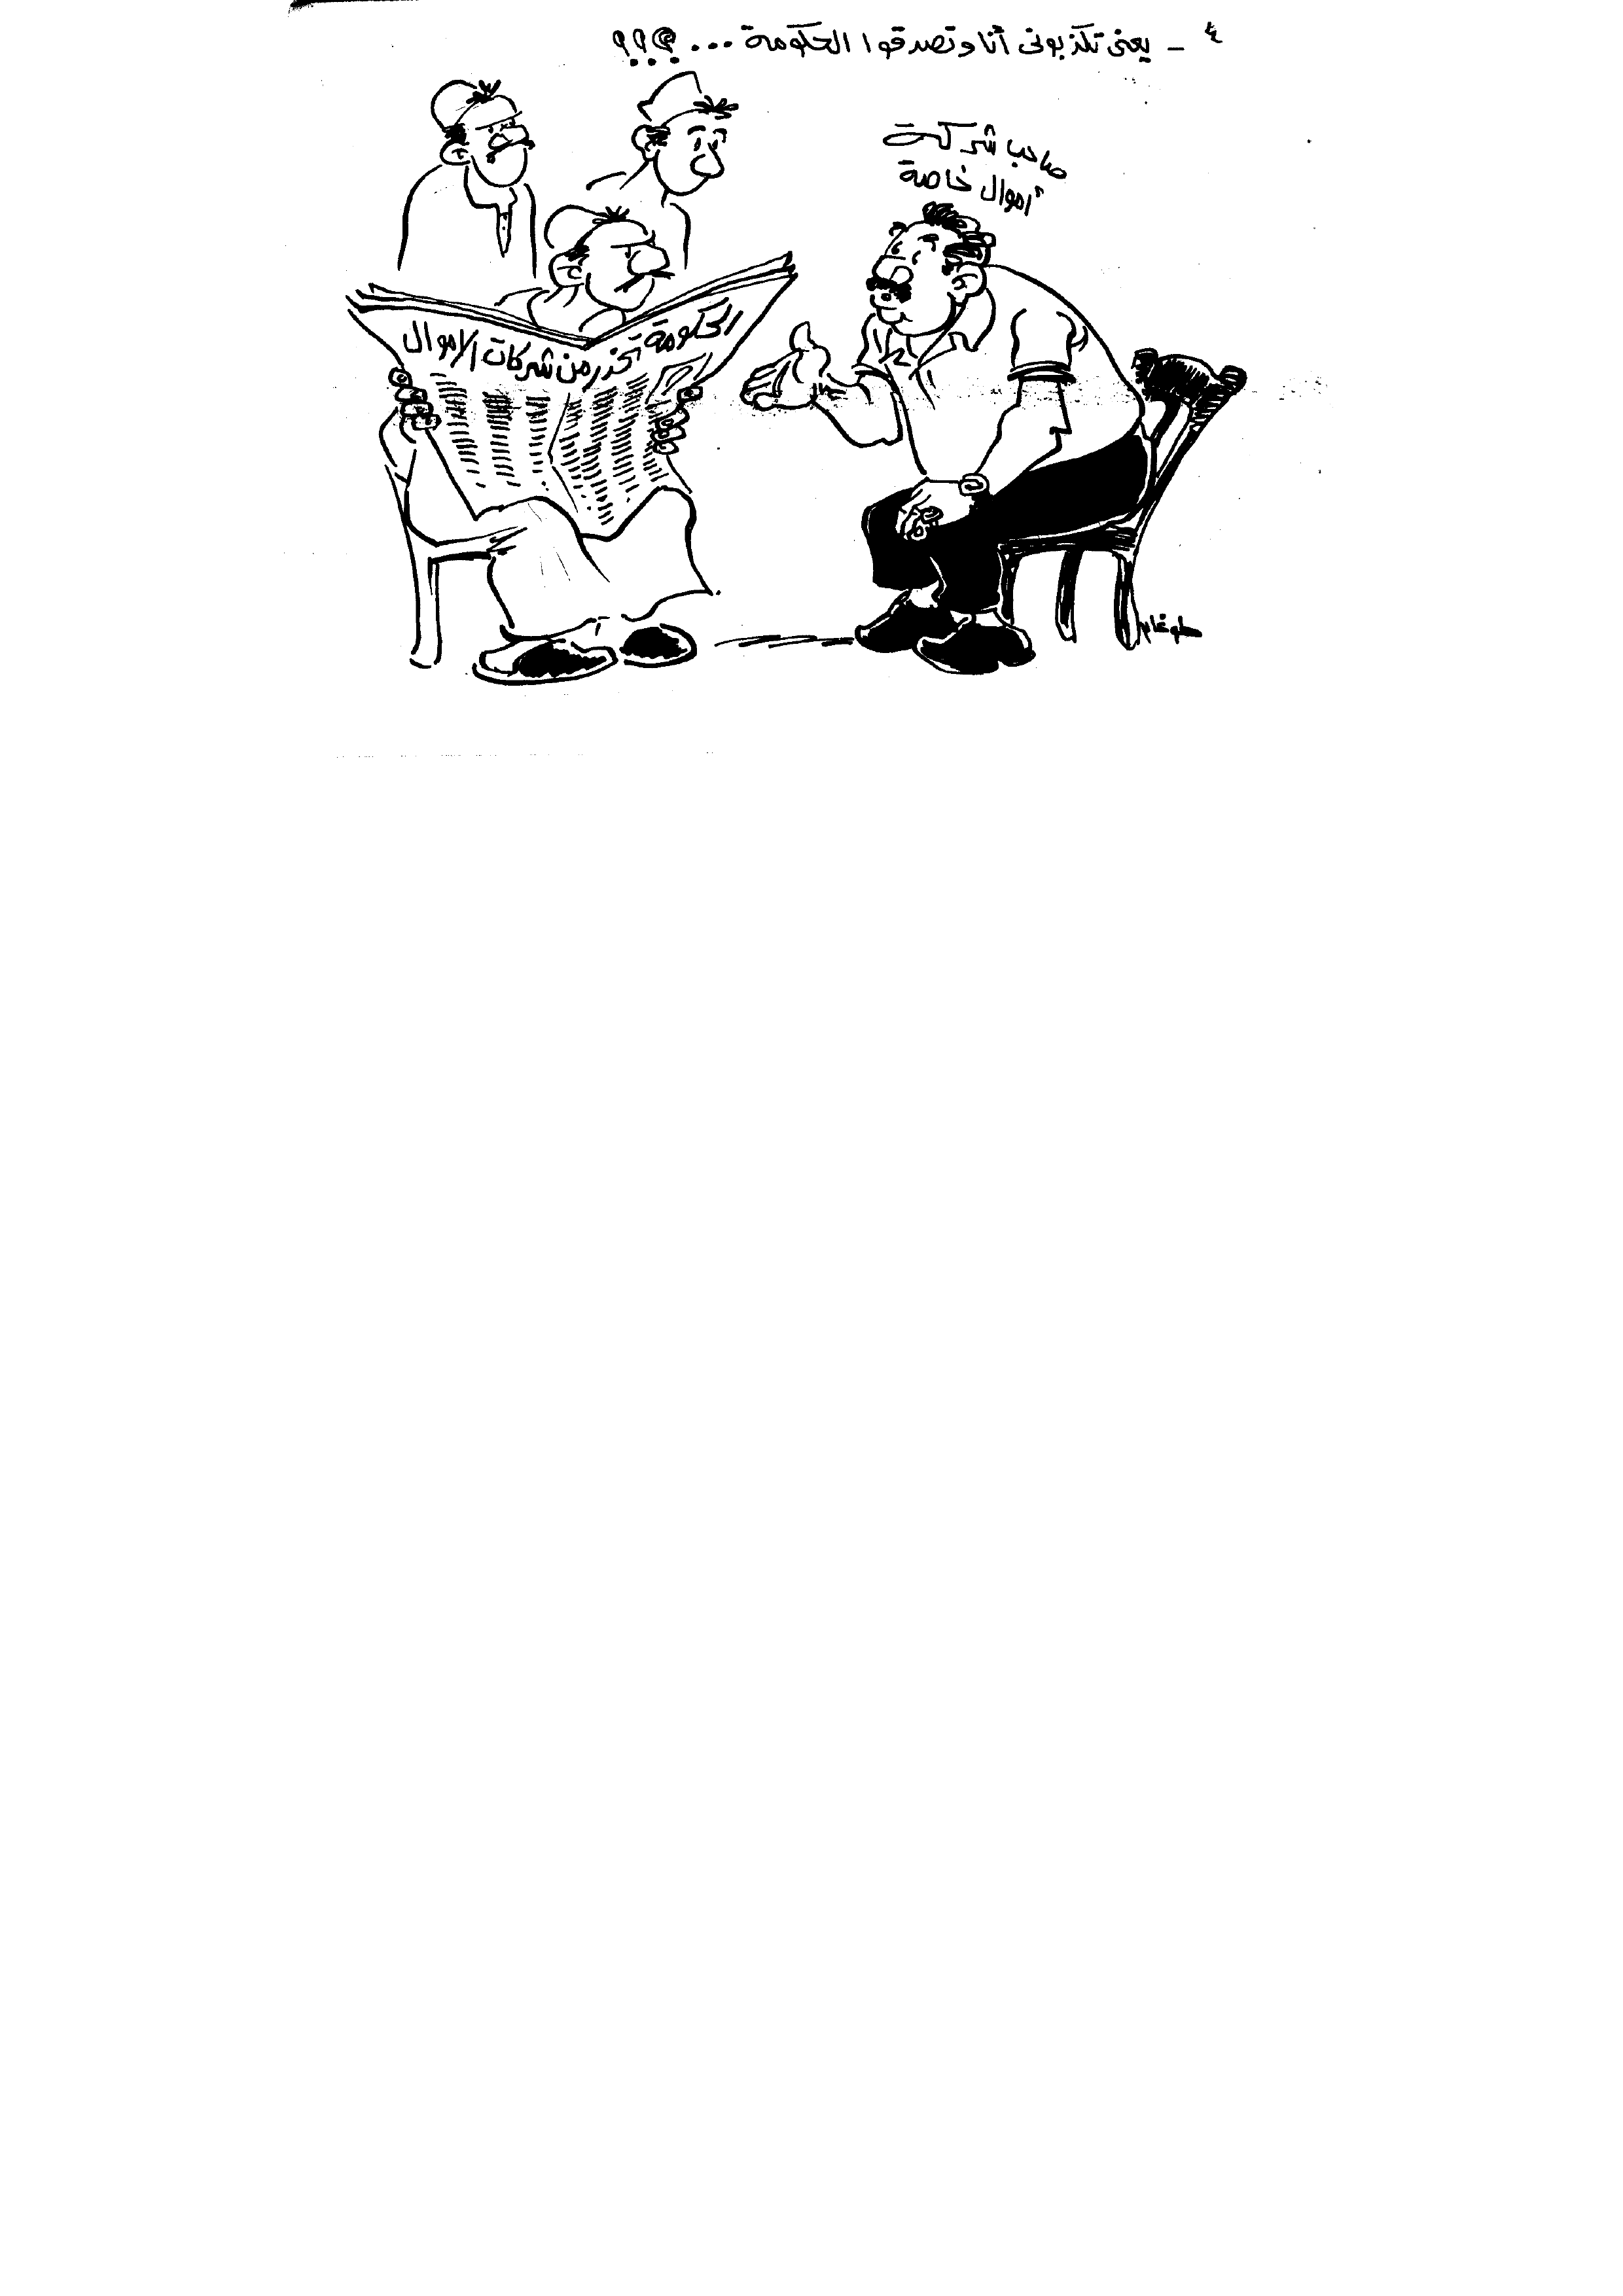 ٤ - يعنى تكذبونى أنا وتصدقوا الحكومة ... ؟؟؟
صاحب شركة
أموال خاصة
الحكومة تحذر من شركات الاموال